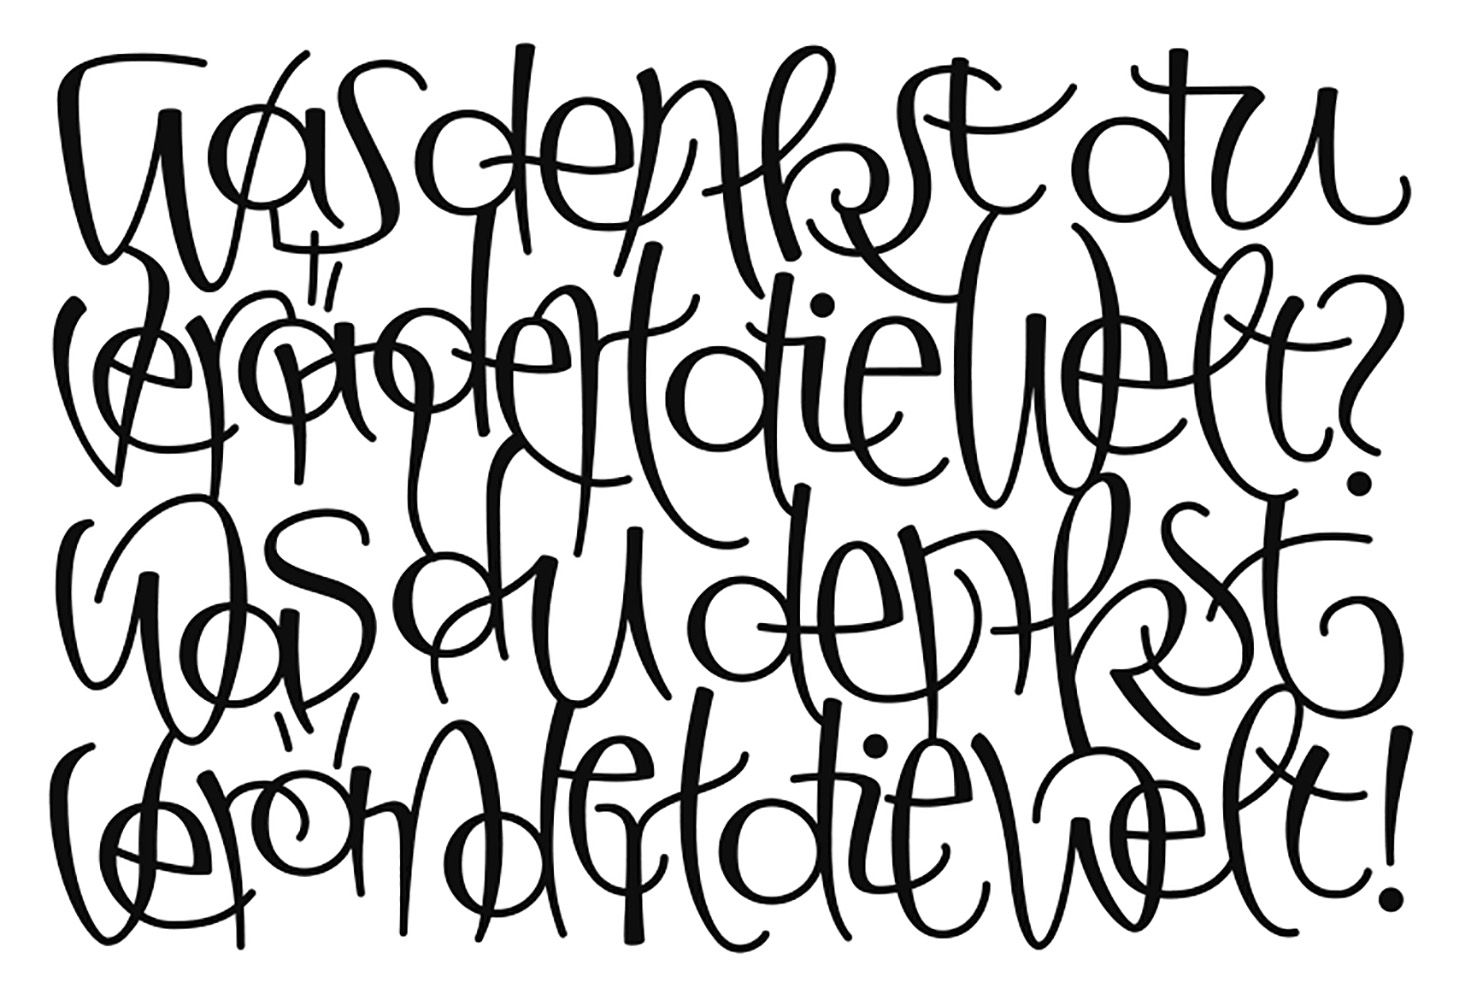 Was denkst du
verändert die Welt?
Was du denkst
verändert die Welt!